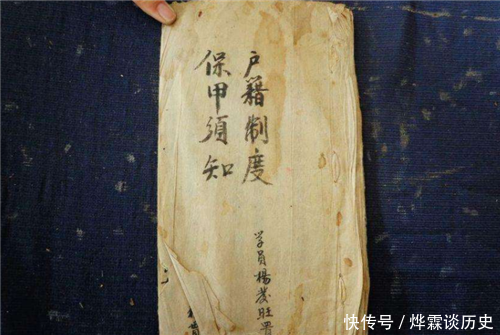 户籍制度
保甲須知
学员楊茂旺
快传号／烨霖谈历史